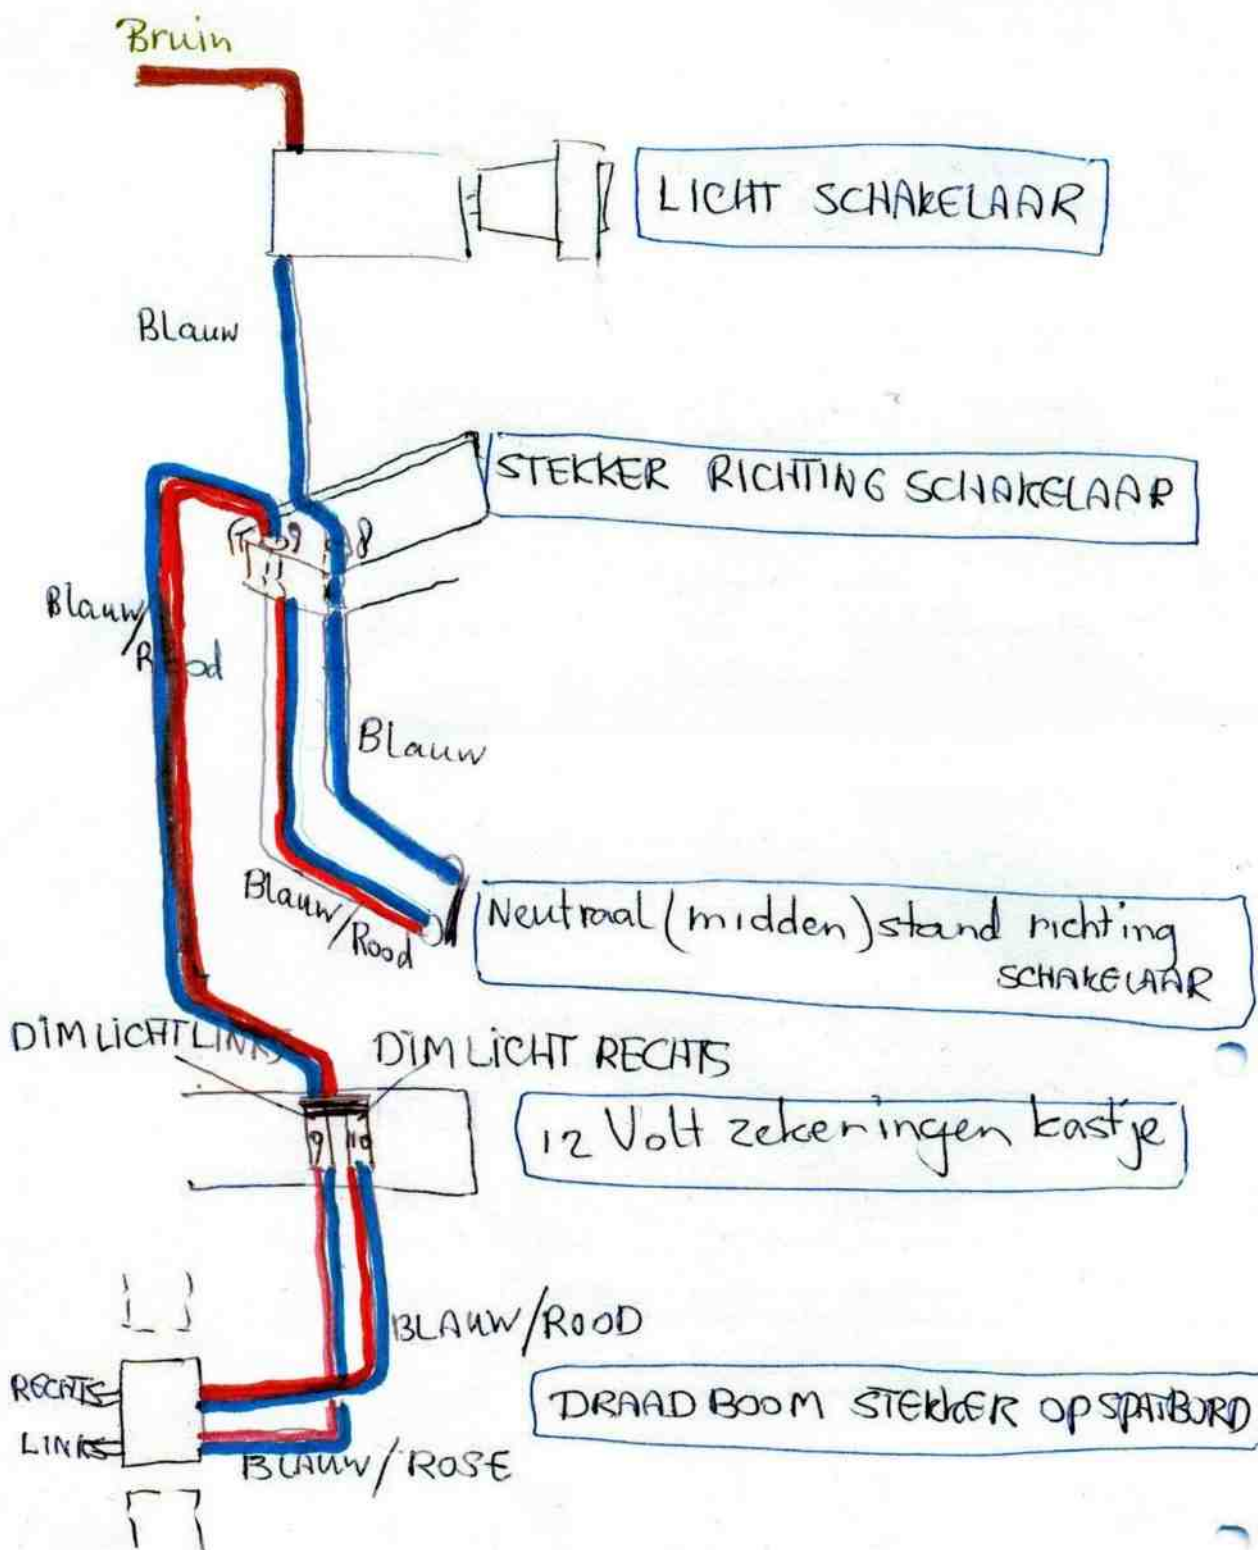 Bruin
LICHT SCHAKELAAR
Blauw
STEKKER RICHTING SCHAKELAAR
9 8
Blauw/
Rood
Blauw
Blauw
/Rood
Neutraal (midden) stand richting
SCHAKELAAR
DIM LICHT LINKS
DIM LICHT RECHTS
9 10
12 Volt zekeringen kastje
BLAUW/ROOD
RECHTS
LINKS
DRAAD BOOM STEKKER OP SPATBORD
BLAUW/ROSE